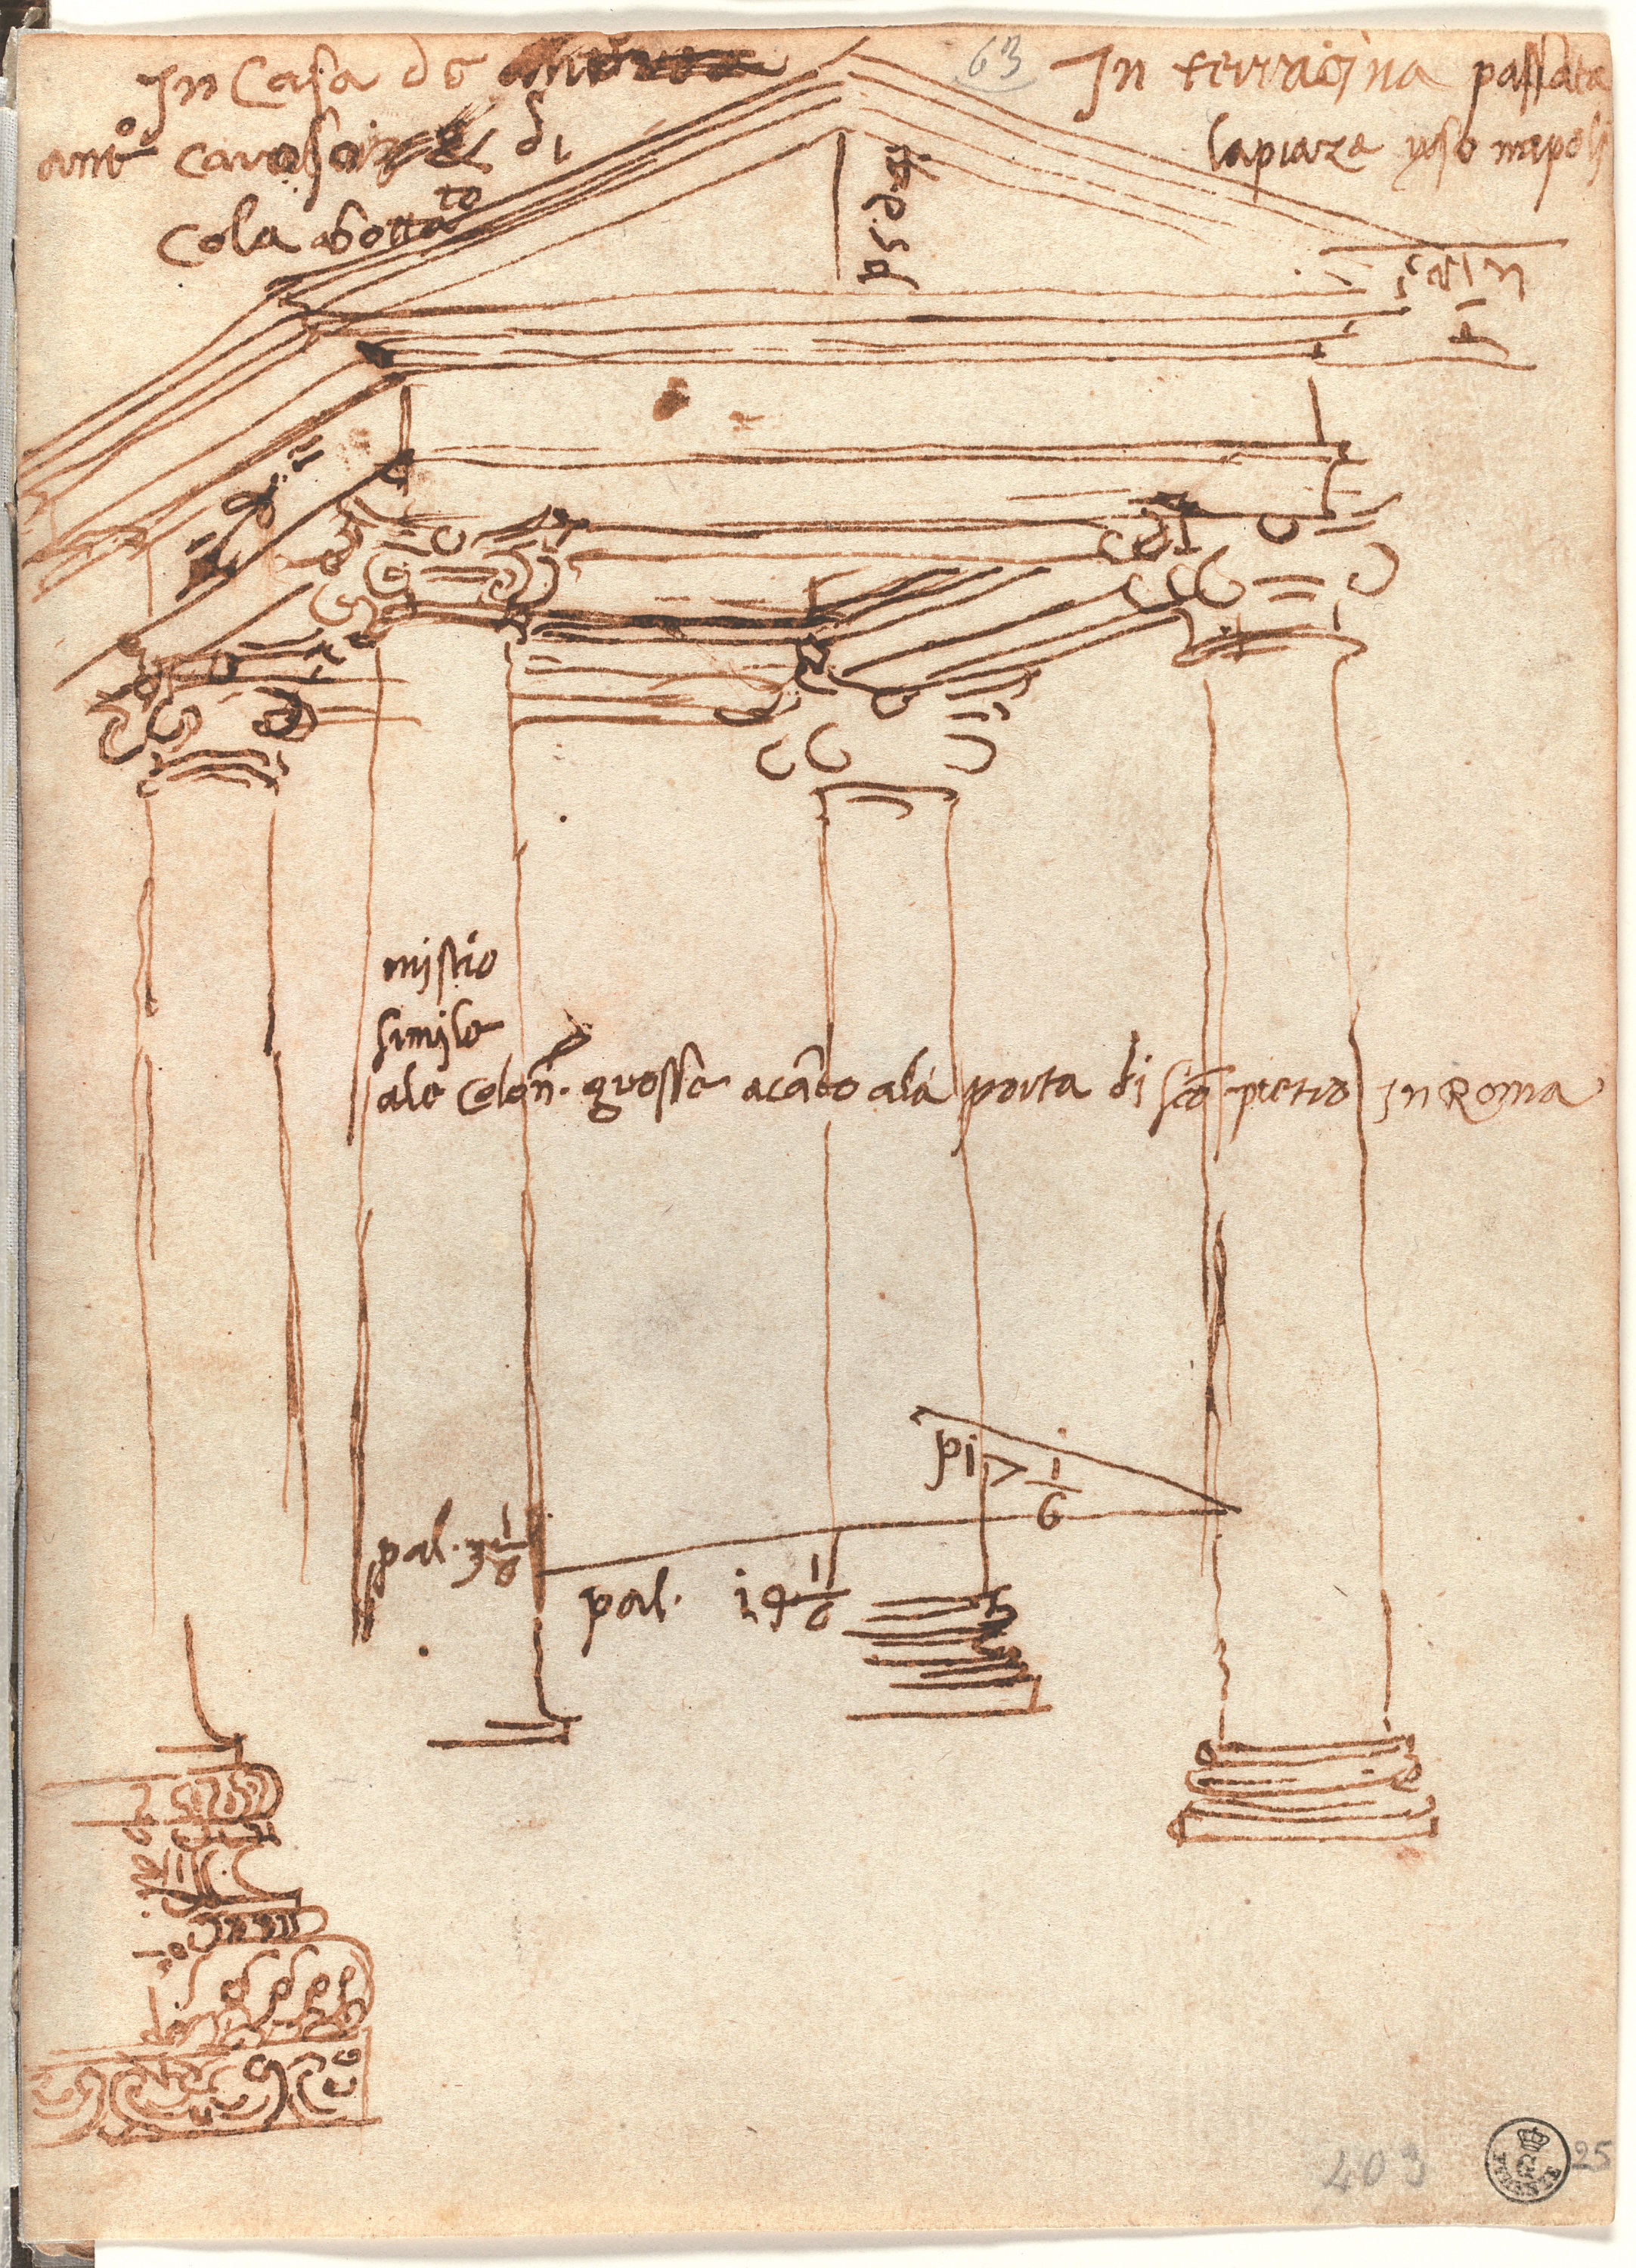 63
In Casa de
ant.º di
Cola abotta
to
In terracina passata
la piaza verso napoli
mistio
simile
ale colon. grosse acāto ala porta di Sco pietro in Roma
pi 7 1/6
pal. 3 1/6
pal. 19 1/6
403
25